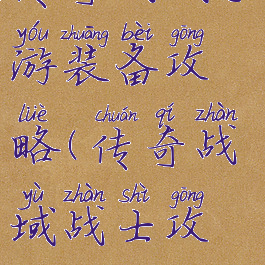 yóu zhuāng bèi gōng
游装备攻
lüè chuán qí zhàn
略(传奇战
yù zhàn shì gōng
域战士攻